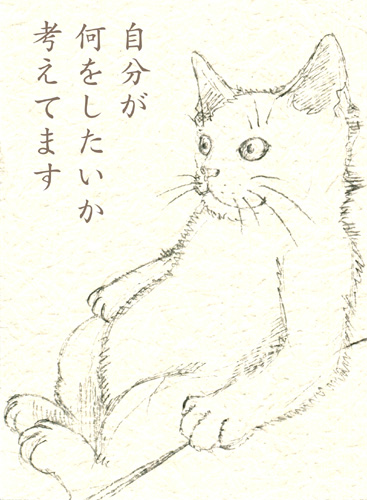 自分が
何をしたいか
考えてます